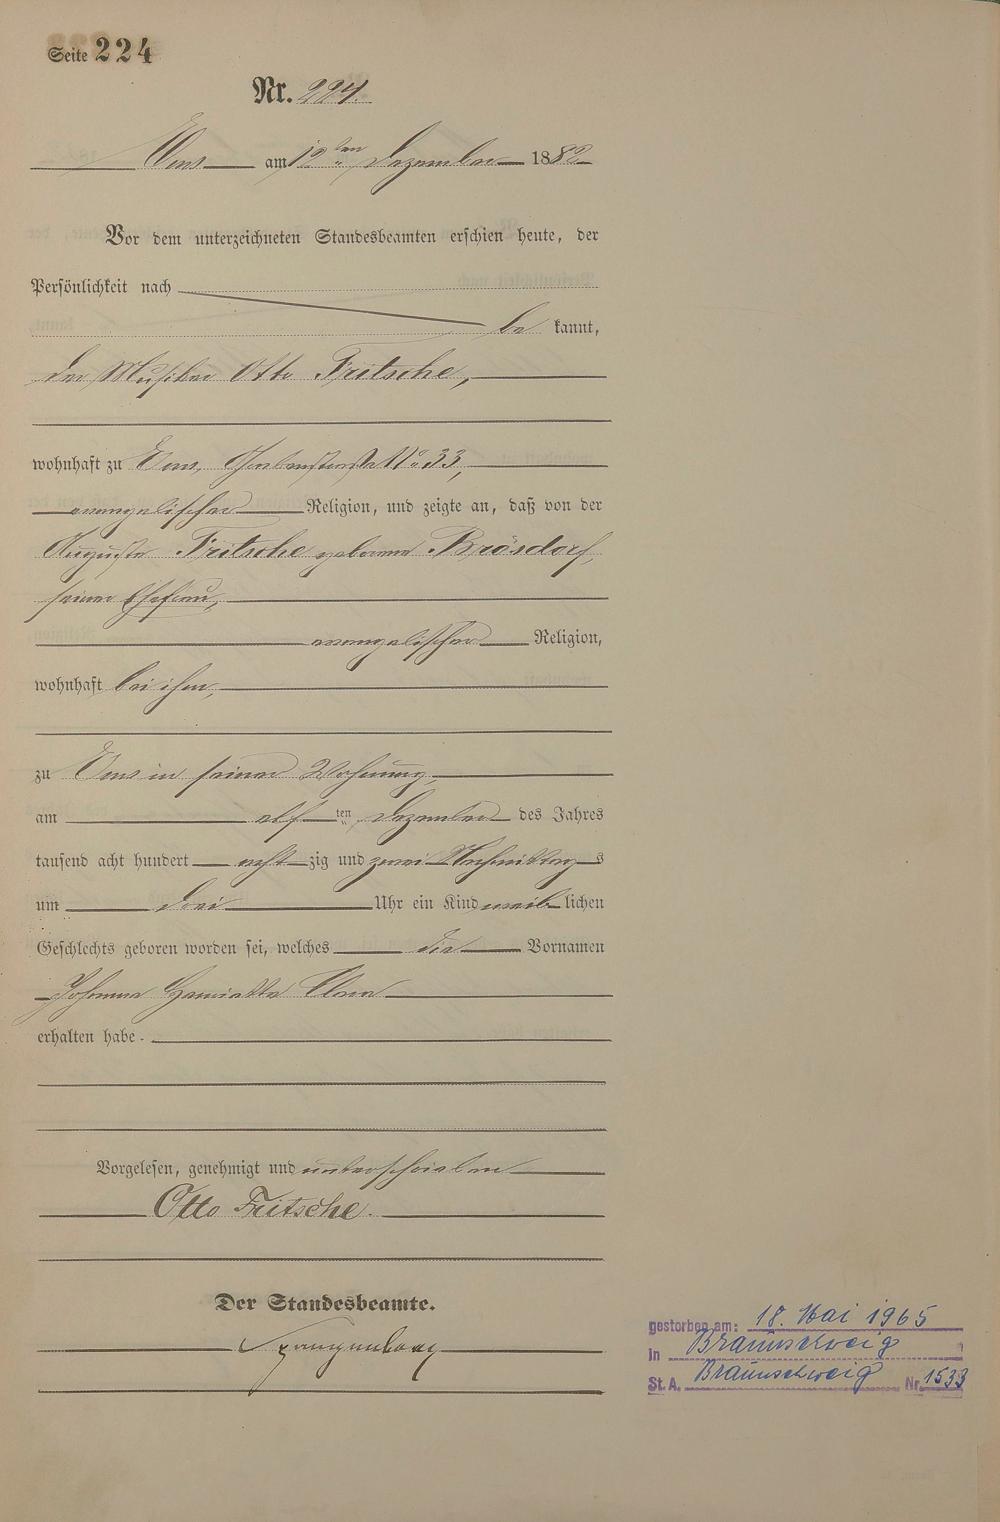 Seite 224
Nr. 224.
Ems am 12ten Dezember 1882
Vor dem unterzeichneten Standesbeamten erschien heute, der
Persönlichkeit nach
be kannt,
der Musiker Otto Fritsche,
wohnhaft zu Ems, No 33,
evangelischer Religion, und zeigte an, daß von der
Auguste Fritsche geborene Brösdorf,
seiner Ehefrau,
evangelischer Religion,
wohnhaft bei ihm,
zu Ems in seiner Wohnung,
am elf ten Dezember des Jahres
tausend acht hundert acht zig und zwei Nachmittag s
um drei Uhr ein Kind weib lichen
Geschlechts geboren worden sei, welches die Vornamen
Johanna Henriette Clara
erhalten habe.
Vorgelesen, genehmigt und unterschrieben
Otto Fritsche.
Der Standesbeamte.
gestorben am: 18. Mai 1965
in Braunschweig
St. A. Braunschweig Nr. 1533